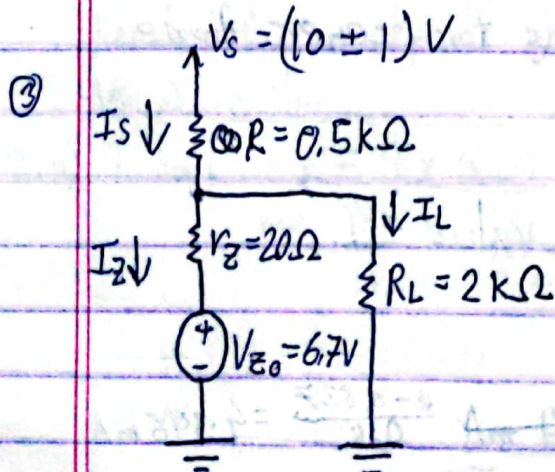 Vs = (10 ± 1) V
③
Is ↓ R = 0.5kΩ
↓ IL
Iz↓ rz=20Ω
RL = 2kΩ
+
- Vzo=6.7V